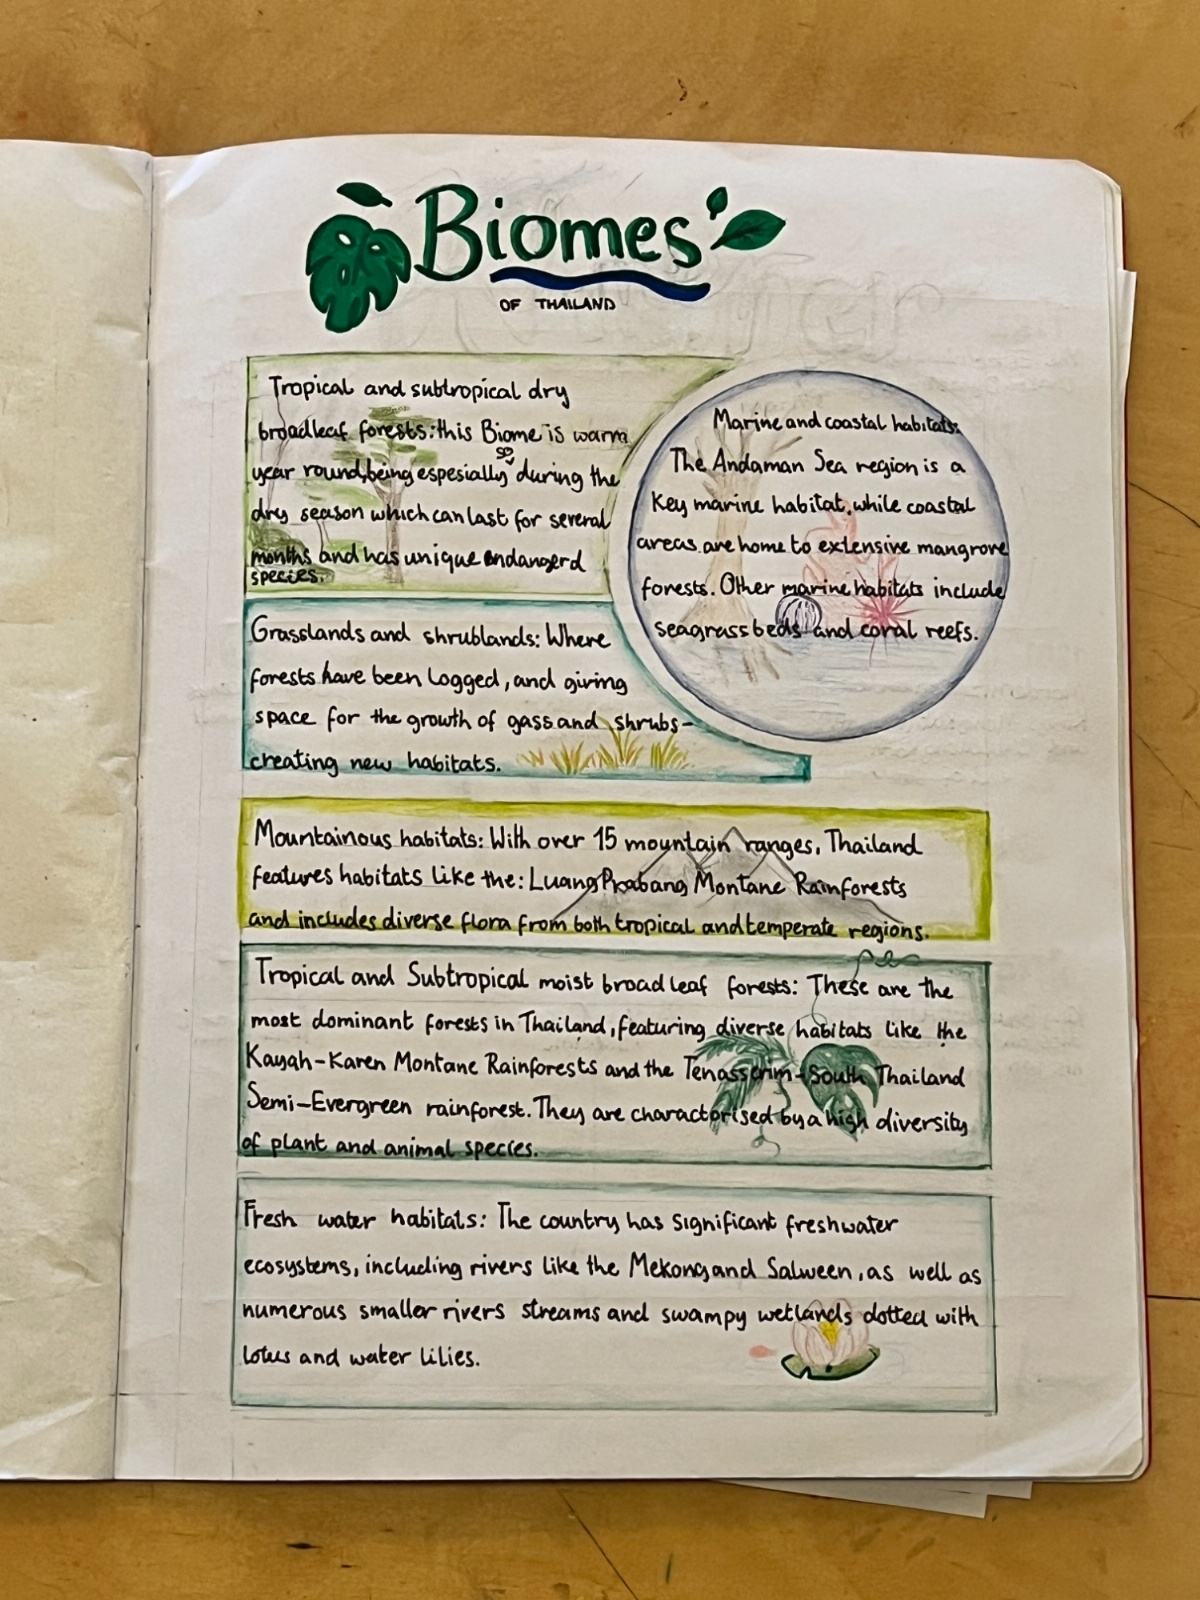 Biomes
OF THAILAND
Tropical and subtropical dry
broadleaf forests: this Biome is warm
year round, being espesially so during the
dry season which can last for several
months and has unique endangerd
species.
Marine and coastal habitats:
The Andaman Sea region is a
Key marine habitat, while coastal
areas are home to extensive mangrove
forests. Other marine habitats include
seagrass beds and coral reefs.
Grasslands and shrublands: Where
forests have been logged, and giving
space for the growth of gass and shrubs-
creating new habitats.
Mountainous habitats: With over 15 mountain ranges, Thailand
features habitats like the: Luang Prabang Montane Rainforests
and includes diverse flora from both tropical and temperate regions.
Tropical and Subtropical moist broad leaf forests: These are the
most dominant forests in Thailand, featuring diverse habitats like the
Kayah-Karen Montane Rainforests and the Tenasserim-South Thailand
Semi-Evergreen rainforest. They are charactorised by a high diversity
of plant and animal species.
Fresh water habitats: The country has significant freshwater
ecosystems, including rivers like the Mekong and Salween, as well as
numerous smaller rivers streams and swampy wetlands dotted with
lotus and water lilies.